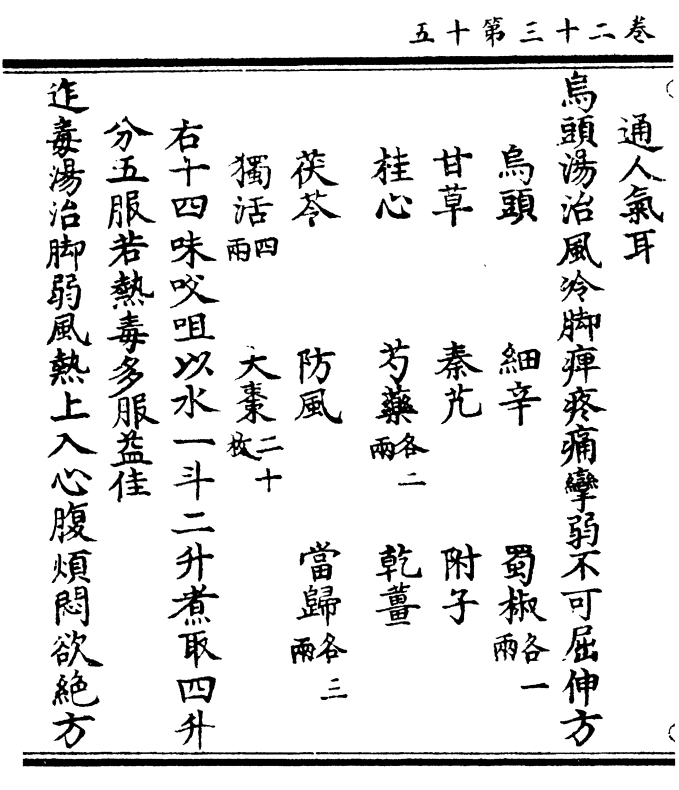 卷二十三第十五
通人氣耳
烏頭湯治風冷脚痺疼痛攣弱不可屈伸方
烏頭 細辛 蜀椒各一兩
甘草 秦艽 附子
桂心 芍藥各二兩 乾薑
茯苓 防風 當歸各三兩
獨活四兩 大棗二十枚
右十四味㕮咀以水一斗二升煮取四升
分五服若熱毒多服益佳
迮毒湯治脚弱風熱上入心腹煩悶欲絕方